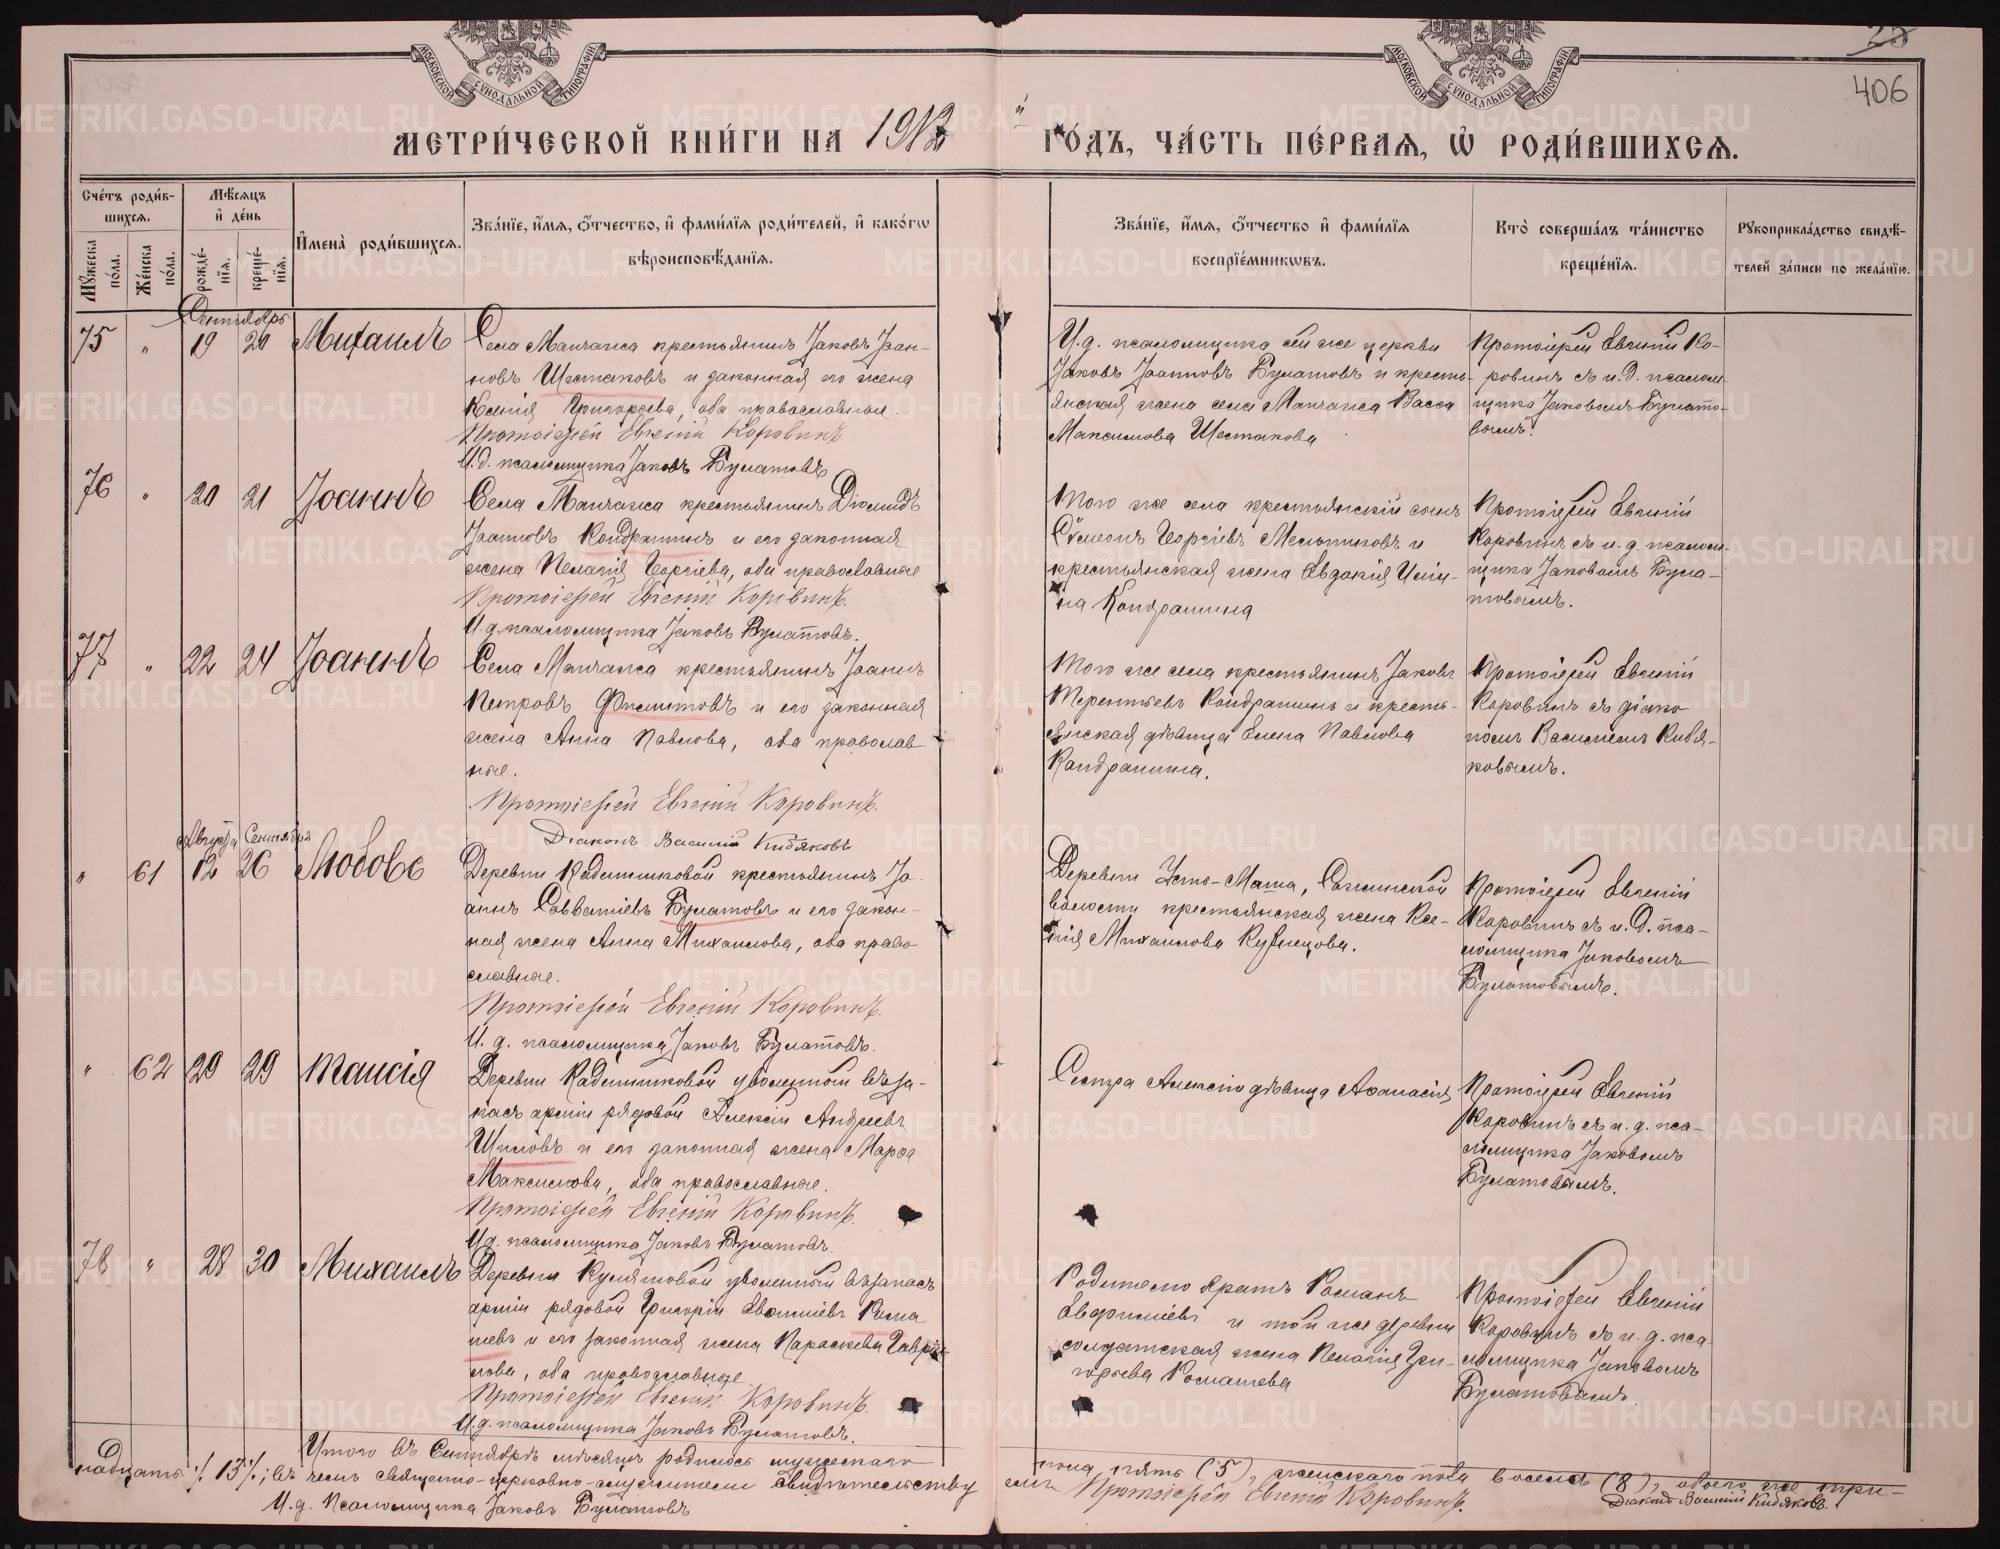 МОСКОВСКОЙ СѴНОДАЛЬНОЙ ТИПОГРАФІИ
МОСКОВСКОЙ СѴНОДАЛЬНОЙ ТИПОГРАФІИ
406
МЕТРИ́ЧЕСКОЙ КНИ́ГИ НА 1912 й ГО́ДЪ, ЧА́СТЬ ПЕ́РВАЯ, Ѡ҆ РОДИ́ВШИХСЯ.
Сче́тъ роди́в-
шихся.
Мѣ́сяцъ
и҆ де́нь
Мꙋ́жеска по́ла.
Же́нска по́ла.
рожде́-
нїя.
креще́-
нїя.
И҆мена̀ роди́вшихся.
Зва́нїе, и҆́мя, ѻ҆́тчество, и҆ фами́лїя роди́телей, и҆ како́гѡ
вѣроисповѣ́данїя.
Зва́нїе, и҆́мя, ѻ҆́тчество и҆ фами́лїя
воспрїе́мникѡвъ.
Кто̀ соверша́лъ та́инство
креще́нїя.
Рꙋкоприкла́дство свидѣ́-
телей за́писи по жела́нїю.
Сентябрь
75 " 19 20 Михаилъ
Села Манчажа крестьянинъ Іаковъ Іоан-
новъ Шестаковъ и законная его жена
Ксенія Григорьева, оба православные.
Протоіерей Евгеній Коровинъ.
И.д. псаломщика Іаковъ Булатовъ
И.д. псаломщика сей же церкви
Іаковъ Іоанновъ Булатовъ и кресть-
янская жена села Манчажа Васса
Максимова Шестакова
Протоіерей Евгеній Ко-
ровинъ съ и.д. псалом-
щика Іаковомъ Булато-
вымъ.
76 " 20 21 Іоаннъ
Села Манчажа крестьянинъ Діомидъ
Іоанновъ Кондрашинъ и его законная
жена Пелагія Георгіева, оба православные
Протоіерей Евгеній Коровинъ.
И.д. псаломщика Іаковъ Булатовъ.
Того же села крестьянскій сынъ
Сѵмеонъ Георгіевъ Мельниковъ и
крестьянская жена Евдокія
Кондрашина
Протоіерей Евгеній
Коровинъ съ и.д. псалом-
щика Іаковомъ Була-
товымъ.
77 " 22 24 Іоаннъ
Села Манчажа крестьянинъ Іоаннъ
Петровъ Филиптовъ и его законная
жена Анна Павлова, оба православ-
ные.
Протоіерей Евгеній Коровинъ.
Діаконъ Василій Кибяковъ
Того же села крестьянинъ Іаковъ
Терентьевъ Кондрашинъ и кресть-
янская дѣвица Елена Павлова
Кондрашина.
Протоіерей Евгеній
Коровинъ съ діако-
номъ Василіемъ Кибя-
ковымъ.
Августа Сентября
" 61 12 26 Любовь
Деревни Кадошниковой крестьянинъ Іо-
аннъ Савватіевъ Булатовъ и его закон-
ная жена Анна Михаилова, оба право-
славные.
Протоіерей Евгеній Коровинъ.
И.д. псаломщика Іаковъ Булатовъ.
Деревни Усть-Маша, Сажинской
волости крестьянская жена Ксе-
нія Михаилова Кузнецова.
Протоіерей Евгеній
Коровинъ съ и.д. пса-
ломщика Іаковомъ
Булатовымъ.
" 62 29 29 Таисія
Деревни Кадошниковой уволенный въ за-
пасъ арміи рядовой Алексій Андреевъ
Шиловъ и его законная жена Марѳа
Максимова, оба православные.
Протоіерей Евгеній Коровинъ.
И.д. псаломщика Іаковъ Булатовъ.
Сестра Алексія дѣвица Аѳанасія
Протоіерей Евгеній
Коровинъ съ и.д. пса-
ломщика Іаковомъ
Булатовымъ.
78 " 28 30 Михаилъ
Деревни уволенный въ запасъ
арміи рядовой Григорій Рома-
шевъ и его законная жена Параскева Гаврі-
лова, оба православные
Протоіерей Евгеній Коровинъ.
И.д. псаломщика Іаковъ Булатовъ.
Родителю братъ Романъ
и той же деревни
солдатская жена Пелагія Гри-
горьева Ромашева
Протоіерей Евгеній
Коровинъ съ и.д. пса-
ломщика Іаковомъ
Булатовымъ.
Итого въ Сентябрѣ мѣсяцѣ родилось мужескаго
пола пять (5), женскаго пола восемь (8), обоего же три-
надцать /13/; въ чемъ священно-церковно-служители свидѣтельству-
емъ Протоіерей Евгеній Коровинъ.
Діаконъ Василій Кибяковъ.
И.д. Псаломщика Іаковъ Булатовъ
METRIKI.GASO-URAL.RU